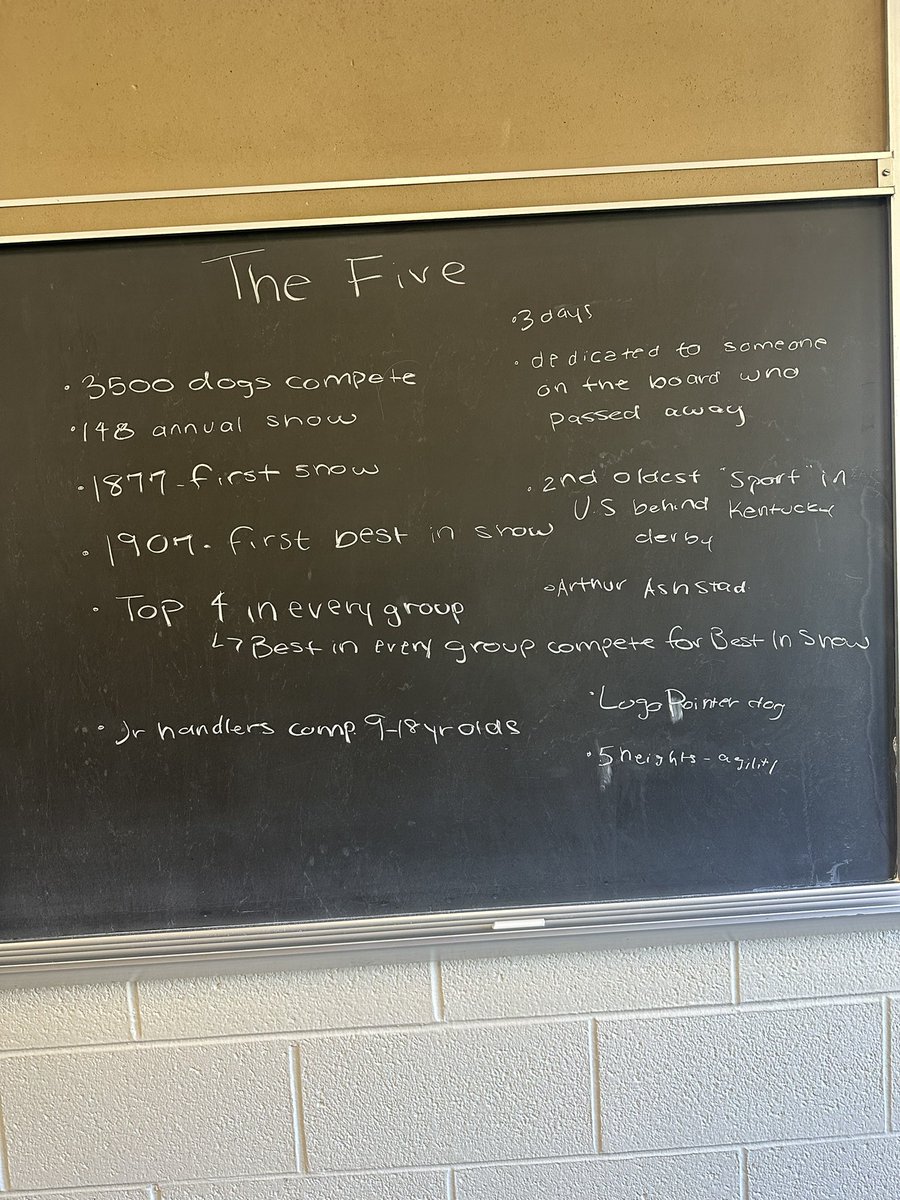 The Five
• 3500 dogs compete
• 148 annual show
• 1877 - first show
• 1907 - first best in show
• Top 4 in every group
↳ Best in every group compete for Best In Show
• Jr handlers comp 9-18 yr olds
• 3 days
• dedicated to someone
on the board who
passed away
• 2nd oldest "Sport" in
U.S behind Kentucky
derby
• Arthur Ash Stad.
• Logo Pointer dog
• 5 heights - agility